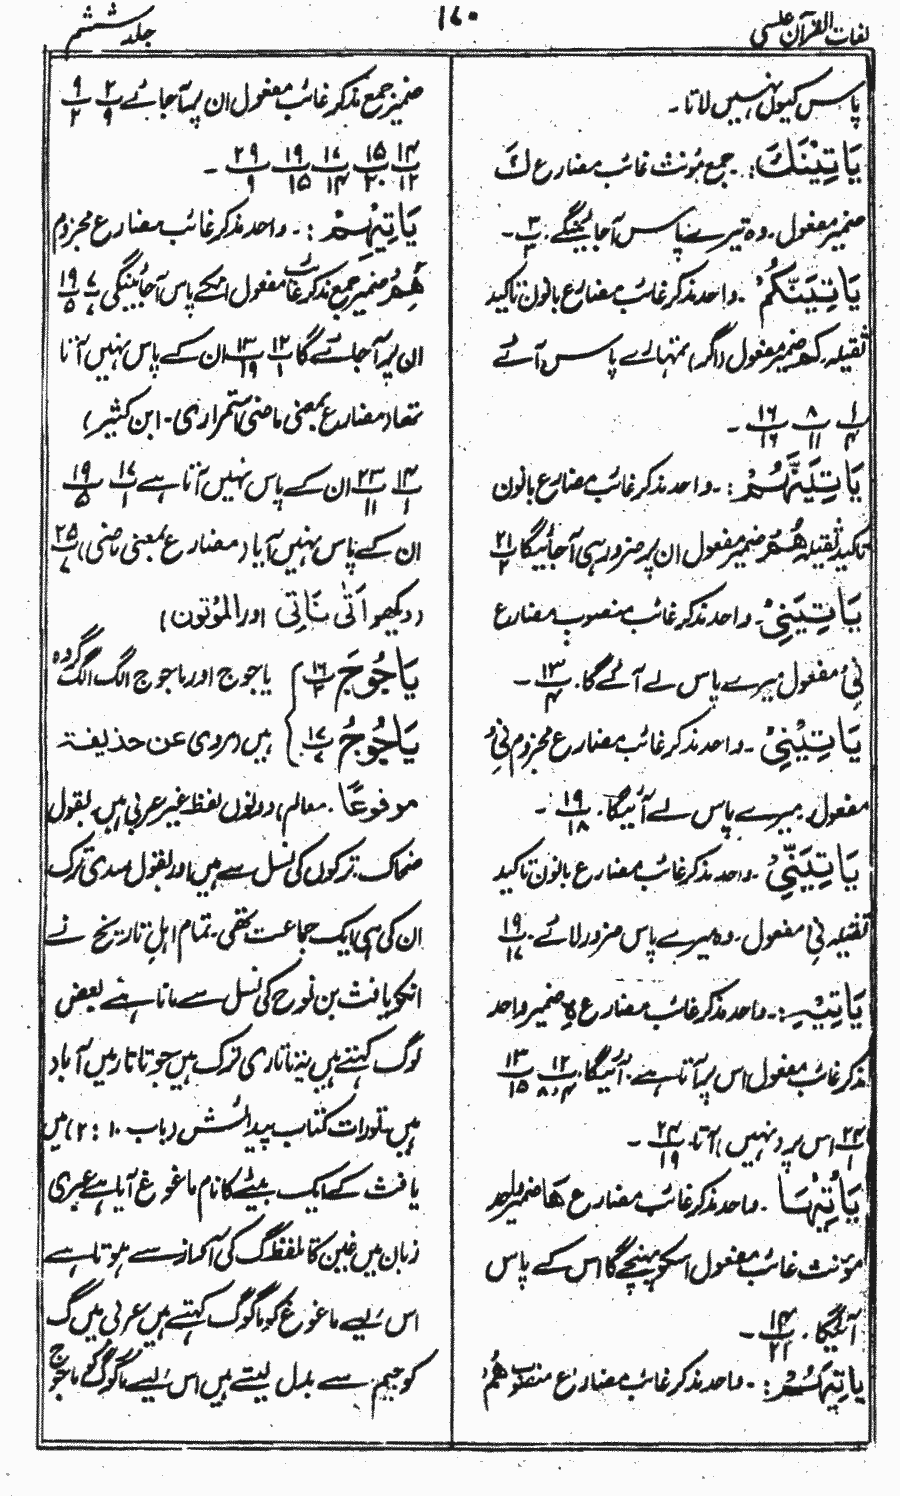 لغات القرآن علسی
۱۷۰
جلد ششم
پاس کیوں نہیں لاتا۔
یَاْتِیْنَكَ: ۔ جمع مؤنث غائب مضارع كَ
ضمیر مفعول۔ وہ تیرے پاس آجائینگے۔ ۳/۳۔
یَاْتِیَنَّكُمْ ۔ واحد مذکر غائب مضارع بانون تاکید
ثقیلہ۔ کم ضمیر مفعول (اگر) تمہارے پاس آئے
۱/۴ ۸/۱۱ ۱۶/۱۶ ۔
یَاْتِیَنَّهُمْ: ۔ واحد مذکر غائب مضارع بانون
تاکید ثقیلہ ھُمْ ضمیر مفعول ان پر ضرور ہی آجائیگا ۲۱/۲
یَاْتِیَنِیْ ۔ واحد مذکر غائب منصوب مضارع
نِیْ مفعول میرے پاس لے آئے گا۔ ۱۳/۴ ۔
یَاْتِیْنِیْ ۔ واحد مذکر غائب مضارع مجزوم نِیْ
مفعول۔ میرے پاس لے آئیگا۔ ۱۹/۱۸ ۔
یَاْتِیَنِّیْ ۔ واحد مذکر غائب مضارع بانون تاکید
ثقیلہ نِیْ مفعول۔ وہ میرے پاس ضرور لائے۔ ۱۹/۱۷
یَاْتِیْهِ: ۔ واحد مذکر غائب مضارع ہِ ضمیر واحد
مذکر غائب مفعول اس پر آتا ہے۔ آئیگا۔ ۱۲/۸،۴ ۱۳/۱۵
۲۴/۱ اس پر (نہیں) آتا۔ ۲۴/۱۹ ۔
یَاْتِهَا ۔ واحد مذکر غائب مضارع ھَا ضمیر واحد
مؤنث غائب مفعول اسکو پہنچے گا اس کے پاس
آئیگا۔ ۱۴/۲۱ ۔
یَاتِیَهُمْ: ۔ واحد مذکر غائب مضارع منصوب ھُمْ
ضمیر جمع مذکر غائب مفعول ان پر آجائے ۲/۹ ۹/۲
۱۴/۱۲ ۱۵/۲۰ ۱۷/۱۴ ۱۹/۱۵ ۲۹/۹ ۔
یَاْتِهِمْ: ۔ واحد مذکر غائب مضارع مجزوم
ھِمْ ضمیر جمع مذکر غائب مفعول انکے پاس آجائینگی ۷/۷ ۱۹/۵
ان پر آجائے گا ۱۲/۱ ۱۳/۱۹ ان کے پاس نہیں آتا
تھا (مضارع بمعنی ماضی استمراری۔ ابن کثیر)
۱۴/۱ ۲۳/۱۱ ان کے پاس نہیں آتا ہے ۱۷/۱ ۱۹/۵
ان کے پاس نہیں آیا (مضارع بمعنی ماضی) ۲۵/۷
(دیکھو اَتٰی تَاْتِی اور المؤتون)
یَاجُوْجَ ۱۶/۲ یاجوج اور ماجوج الگ الگ گروہ
یَاجُوْجُ ۱۷/۷ ہیں (مروی عن حذیفۃ
موفوعًا۔ معالم) دونوں لفظ غیر عربی ہیں۔ بقول
ضحاک۔ ترکوں کی نسل سے ہیں اور بقول سدی ترک
ان کی ہی ایک جماعت تھی۔ تمام اہلِ تاریخ نے
انکو یافث بن نوح کی نسل سے مانا ہے بعض
لوگ کہتے ہیں یہ تاتاری ترک ہیں جو تاتار میں آباد
ہیں۔ تورات کتاب پیدائش (باب ۱۰ : ۲) میں
یافث کے ایک بیٹے کا نام ماغوغ آیا ہے عبری
زبان میں غین کا تلفظ گ کی آواز سے ہوتا ہے
اس لیے ماغوغ کو ماگوگ کہتے ہیں عربی میں گ
کو جیم سے بدل لیتے ہیں اس لیے ماگوگ کو ماجوج